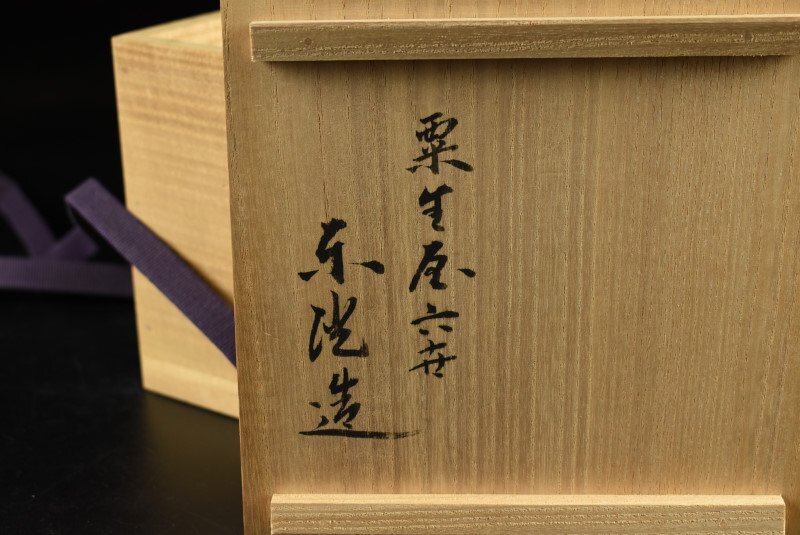 粟生屋六世
東陽造